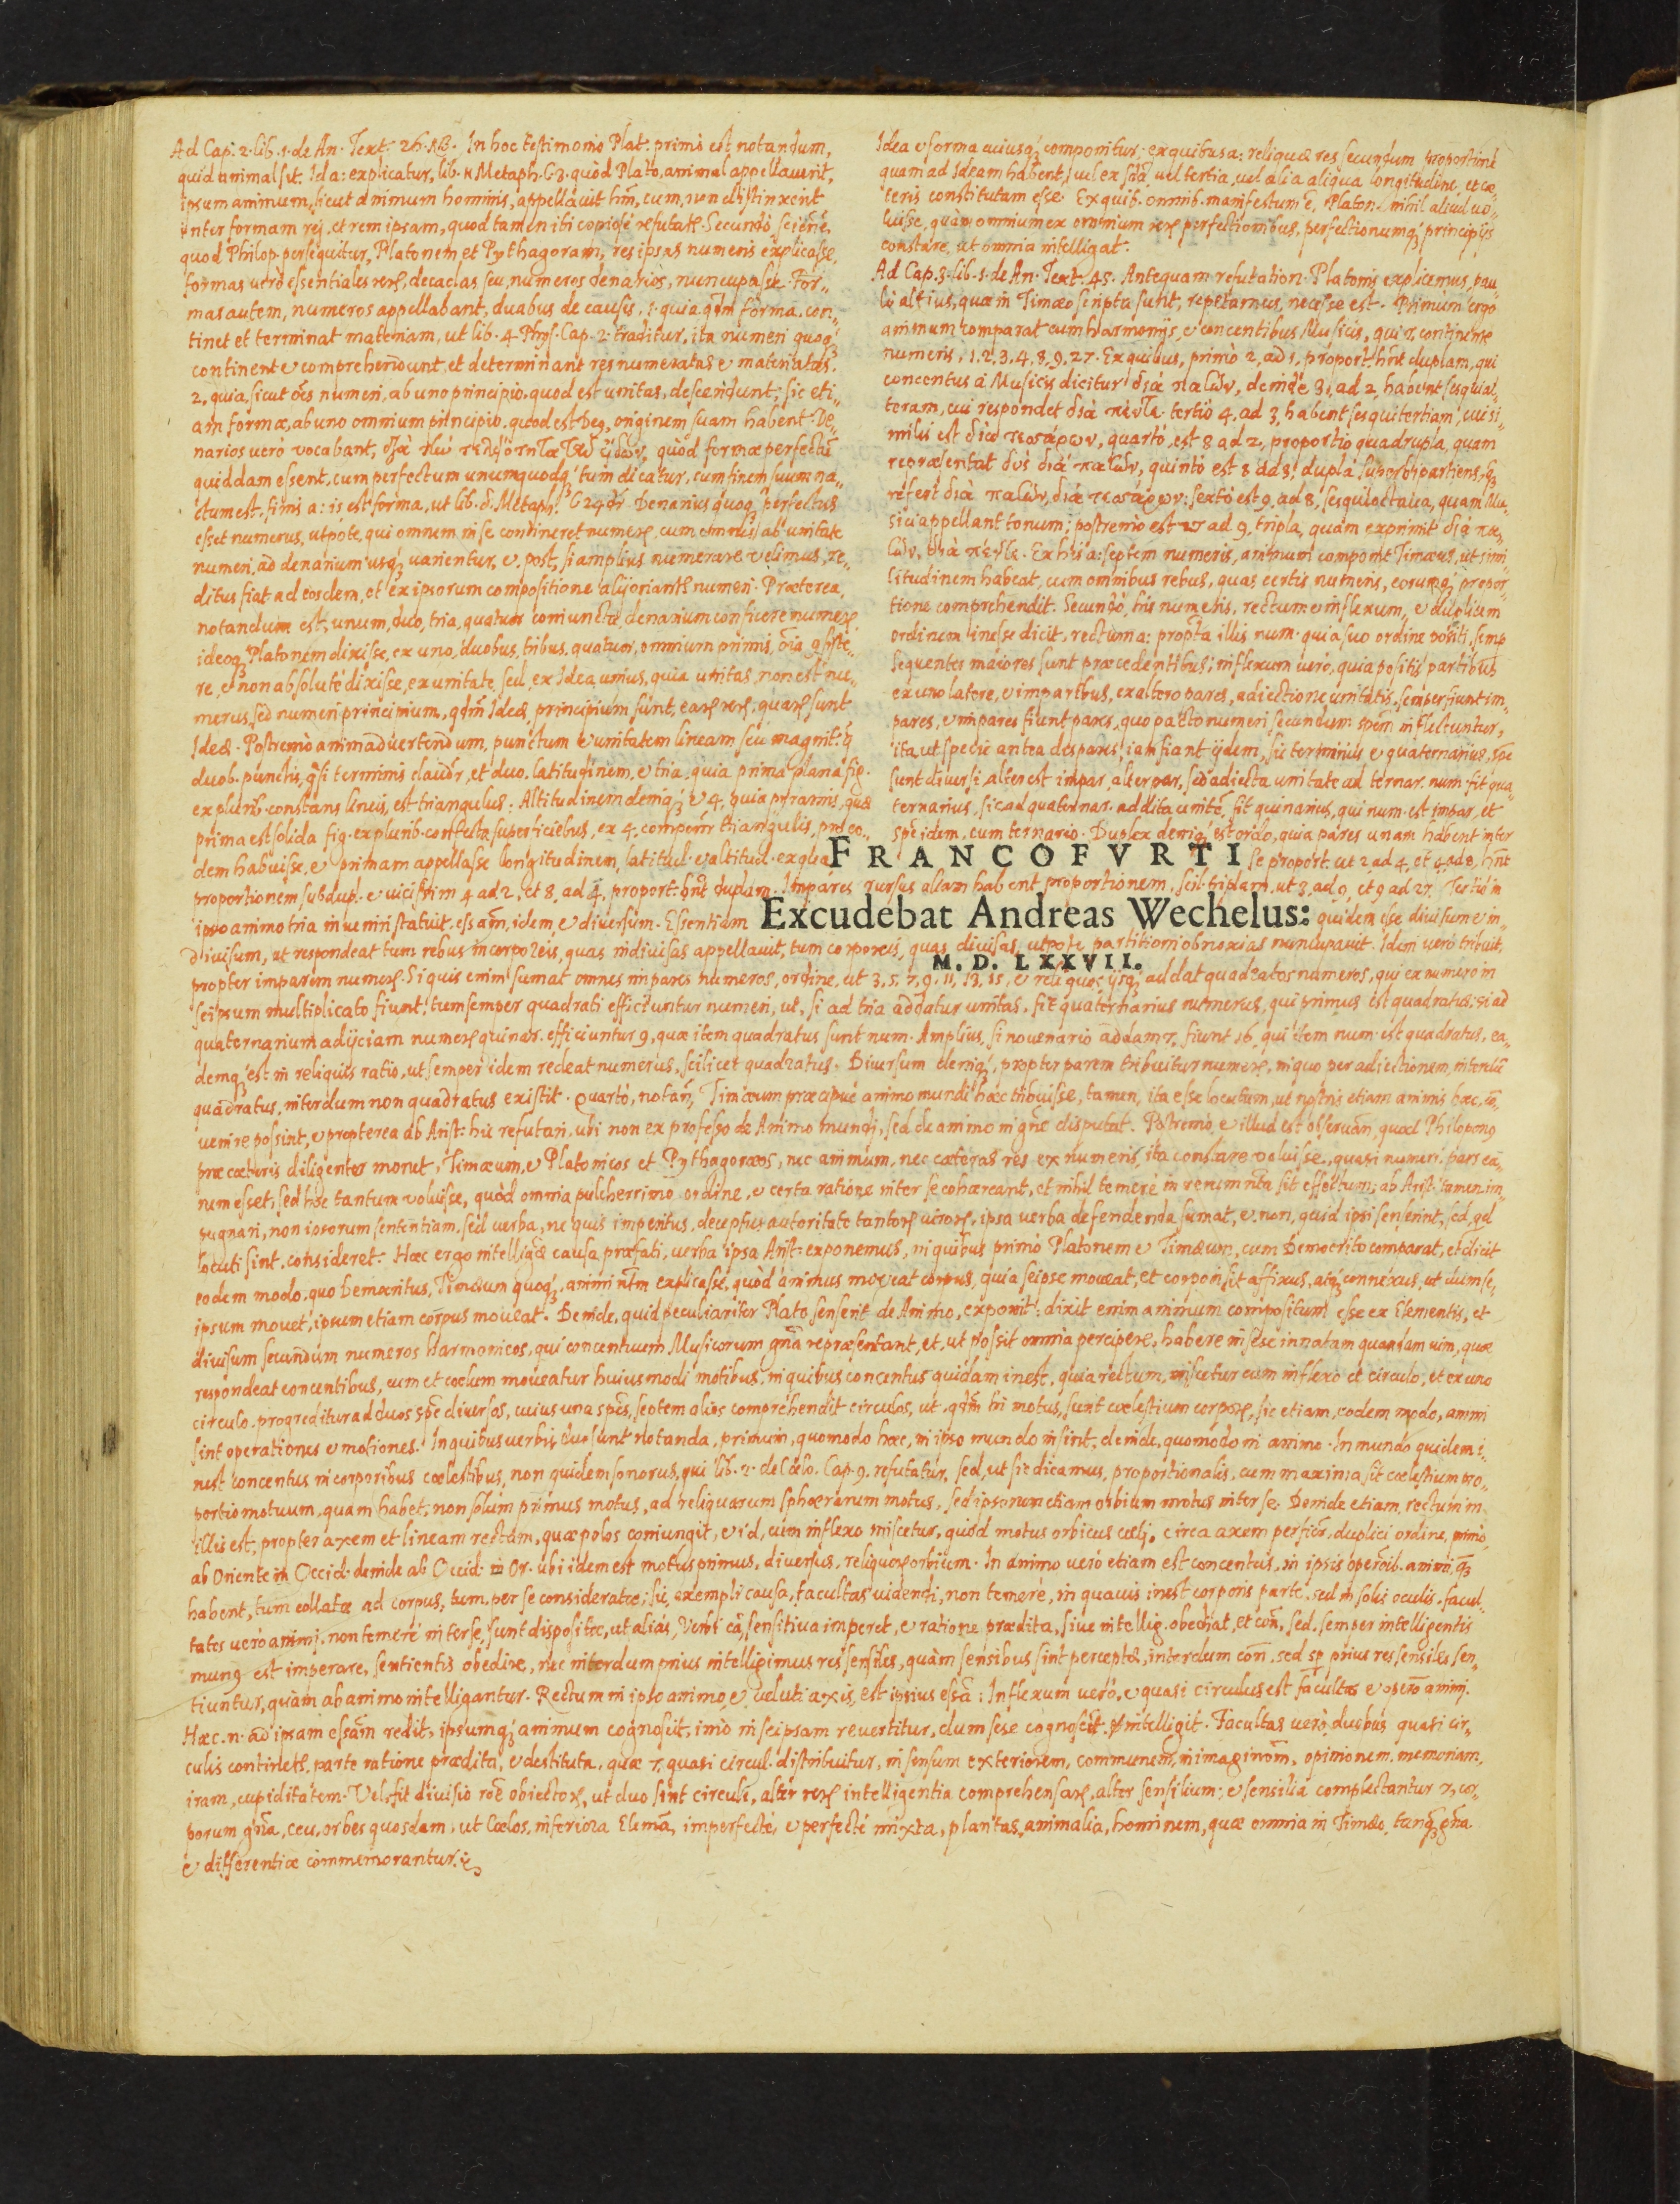 Ad Cap. 2. lib. 1. de An. Text. 26. In hoc testimonio Plat. primò est notandum,
quid animal sit. Id a: explicatur, lib. Metaph. quòd Plato, animal appellauerit,
ipsum animum, sicut animum hominis, appellauit cum, non distinxerit
inter formam rej, et rem ipsam, quod tamen copiosè Secundò
quod Philop. persequitur, Platonem, et Pythagoram, res ipsas numeris explicasse,
formas verò essentiales decadas seu, numeros denarios, nuncupasse. For-
mas autem, numeros appellabant, duabus de causis, 1. quia forma, con-
tinet et terminat materiam, ut lib. 4. Phys. Cap. 2. traditur, ita numeri quoq;
continent & comprehendunt, et determinant res numeratas & materiatas.
2. quia, sicut oẽs numeri, ab uno principio, quod est unitas, descendunt; sic eti-
am formæ, ab uno omnium principio, quod est Deq, originem suam habent. De-
narios uerò vocabant, quòd formæ perfectũ
quiddam essent, cum perfectum unumquodq; tum dicatur, cum finem suum na-
ctum est, finis a: is est forma, ut lib. Metaph. Denarius quoq; perfectus
esset numerus, utpote, qui omnem in se contineret ab unitate
numeri, ad denarium usq; uarientur, & post, si amplius numerare uelimus, re-
ditus fiat ad eosdem, et ex ipsorum compositione alij numeri. Præterea,
notandum est, unum, duo, tria, quatuor coniuncta, denarium conficere
ideoq; Platonem dixisse, ex uno, duobus, tribus, quatuor, omnium primis,
re, & non absolutè dixisse, ex unitate, sed, ex Idea unius, quia unitas, non est nu-
merus, sed numeri principium, Ideæ, principium sunt, sunt
Ideæ. Postremò animaduertendum, punctum & unitatem lineam seu magnit.
duob. punctis, terminis et duo, latitudinem, & tria, quia prima plana fig.
ex plurib. constans lineis, est triangulus: Altitudinem deniq; & 4, quia pyramis, quæ
prima est solida fig. ex plurib. confecta superficiebus, ex 4, triangulis, pro eo-
dem habuisse, & primam appellasse longitudinem, latitud. & altitud. ex
Idea & forma cuiusq; componitur, ex quibus a: reliquæ res secundum proportionẽ
quam ad Ideam habent, uel ex uel tertia, uel alia aliqua longitudine, et cæ-
teris constitutam esse. Ex quib. omnib. manifestum ẽ, Platon. nihil aliud uo-
luisse, quàm omnium ex omnium perfectionibus, perfectionumq; principijs
constare, ut omnia intelligat.
Ad Cap. 3. lib. 1. de An. Text. 45. Antequam refutation. Platonis explicemus, pau-
lò altius, quæ in Timæo scripta sunt, repetamus, necesse est. Primùm ergo
animum comparat cum harmonijs, & concentibus Musicis, qui 7. continentur
numeris, 1. 2. 3. 4. 8. 9. 27. Ex quibus, primò 2, ad 1, proport. duplam, qui
concentus à Musicis dicitur deinde 3, ad 2, habent sesquial-
teram, cui respondet tertiò 4, ad 3, habent sesquitertiam, cui si-
milis est quartò, est 8 ad 2, proportio quadrupla, quam
repræsentat quintò est 8 ad 3, dupla
refert sextò est 9, ad 8, sesquioctaua, quam Mu-
sici appellant tonum; postremò est 27 ad 9, tripla, quam exprimit
Ex his a: septem numeris, animum componit Timæus, ut simi-
litudinem habeat, cum omnibus rebus, quas certis numeris, eorumq; propor-
tione comprehendit. Secundò, his numeris, rectum & inflexum, & duplicem
ordinem inesse dicit, rectum a: illis num. quia suo ordine positi, semp
sequentes maiores sunt præcedentibus; inflexum uerò, quia positis partibus
ex uno latere, & imparibus, ex altero pares, adiectione unitatis, semper fiunt im-
pares, & impares fiunt pares, quo pacto numeri, secundum inflectuntur,
ita, ut specie antea despares, iam fiant ijdem, sic ternarius & quaternarius,
sunt diuersi, alter est impar, alter par, sed adiecta unitate ad ternar. num. fit qua-
ternarius, sic ad quaternar. addita fit quinarius, qui num. est impar, et
idem, cum ternario. Duplex deniq; est ordo, quia pares unam habent inter
FRANCOFVRTI
se proport. ut 2 ad 4, et 4 ad 8,
proportionem, subdup. & uicissim 4 ad 2, et 8, ad 4, proport. duplam. Impares rursus aliam habent proportionem, scil. triplam, ut 3, ad 9, et 9 ad 27. Tertiò in
ipso animo tria inueniri statuit, idem, & diuersum. Essentiam
Excudebat Andreas Wechelus:
quidem esse diuisum & in-
diuisum, ut respondeat tum rebus incorporeis, quas indiuisas appellauit, tum corporeis, quas diuisas, utpote partitioni obnoxias nuncupauit. Idem uerò tribuit,
M. D. LXXVII.
propter imparem Si quis enim sumat omnes impares numeros, ordine, ut 3, 5, 7, 9, 11, 13, 15, & reliquos, ijsq; addat quadratos numeros, qui ex numero in
seipsum multiplicato fiunt; tum semper quadrati efficiuntur numeri, ut, si ad tria addatur unitas, fit quaternarius numerus, qui primus est quadratus; si ad
quaternarium adijciam quinar. efficiuntur 9, quæ item quadratus sunt num. Amplius, si nouenario addam 7, fiunt 16, qui item num. est quadratus, ea-
demq; est in reliquis ratio, ut semper idem redeat numerus, scilicet quadratus. Diuersum deniq;, propter parem tribuitur in quo per adiectionem, interdũ
quadratus, interdum non quadratus existit. Quartò, Timæum præcipuè animo mundi hæc tribuisse, tamen, ita esse locutum, ut nostris etiam animis hæc,
uenire possint, & propterea ab Arist. hic refutari, ubi non ex professo de Animo mundi, sed de animo in disputat. Postremò & illud est quod Philoponq
præ cæteris diligenter monet, Timæum, & Platonicos et Pythagoræos, nec animum, nec cæteras res ex numeris, ita constare uoluisse, quasi numeri, pars
num esset, sed hoc tantum voluisse, quòd omnia pulcherrimo ordine, & certa ratione inter se cohæreant, et nihil temerè in rerum sit effectum; ab Arist. tamen im-
pugnari, non ipsorum sententiam, sed verba, ne quis imperitus, deceptus autoritate ipsa verba defendenda sumat, & non, quid ipsi senserint, sed, qd
locuti sint, consideret. Hæc ergo causa præfati, verba ipsa Arist. exponemus, in quibus primò Platonem & Timæum, cum Democrito comparat, et dicit
eodem modo, quo Democritus, Timæum quoq;, animi explicasse, quòd animus moueat corpus, quia seipse moueat, et corpori sit affixus, atq; connexus, ut dum se-
ipsum mouet, ipsum etiam corpus moueat. Deinde, quid peculiariter Plato senserit de Animo, exponit: dixit enim animum compositum esse ex Elementis, et
diuisum secundum numeros harmonicos, qui concentuum Musicorum repræsentant, et, ut possit omnia percipere, habere in sese innatam quandam uim, quæ
respondeat concentibus, cum et cœlum moueatur huiusmodi motibus, in quibus concentus quidam inest, quia rectum, miscetur cum inflexo et circulo, et ex uno
circulo, progreditur ad duos diuersos, cuius una septem alios comprehendit circulos, ut motus, sunt cœlestium sic etiam, eodem modo, animi
sint operationes & motiones. In quibus verbis duo sunt notanda, primùm, quomodo hæc, in ipso mundo insint; deinde, quomodo in animo. In mundo quidem i-
nest concentus in corporibus cœlestibus, non quidem sonorus, qui lib. 2. de Cœlo. Cap. 9. refutatur, sed, ut sic dicamus, proportionalis, cum maxima sit cœlestium pro-
portio motuum, quam habet, non solùm primus motus, ad reliquarum sphærarum motus, sed ipsorum etiam orbium motus inter se. Deinde etiam, rectum in
illis est, propter axem et lineam rectam, quæ polos coniungit, & id, cum inflexo miscetur, quòd motus orbicus cœlj, circa axem duplici ordine, primò,
ab Oriente in Occid. deinde ab Occid. in Or. ubi idem est motus primus, diuersus, orbium. In animo uerò etiam est concentus, in ipsis animi,
habent, tum collatæ ad corpus, tum, per se consideratæ; sic, exempli causa, facultas uidendi, non temerè, in quauis inest corporis parte, sed in solis oculis. facul-
tates uerò animi, non temerè inter se, sunt dispositæ, ut aliàs, Verbi sensitiua imperet, & ratione prædita, siue intellig. obediat, sed, semper intelligentis
munq est imperare, sentientis obedire, nec interdum prius intelligimus res sensiles, quàm sensibus sint perceptæ, interdum sed prius res sensiles sen-
tiuntur, quàm ab animo intelligantur. Rectum in ipso animo, & ueluti axis, est ipsius Inflexum uerò, & quasi circulus est facultas animi.
Hæc n. ad ipsam redit, ipsumq; animum cognoscit, imò in seipsam reuertitur, dum sese cognoscit & intelligit. Facultas uerò, duobus quasi cir-
culis parte ratione prædita, & destituta, quæ 7. quasi circul. distribuitur, in sensum exteriorem, communem, opinionem, memoriam,
iram, cupiditatem. Vel, fit diuisio ut duo sint circuli, alter intelligentia alter sensilium; & sensilia complectantur 7, cor-
porum ceu, orbes quosdam, ut Cœlos, inferiora imperfectè, & perfectè mixta, plantas, animalia, hominem, quæ omnia in Timæo,
& differentiæ commemorantur.